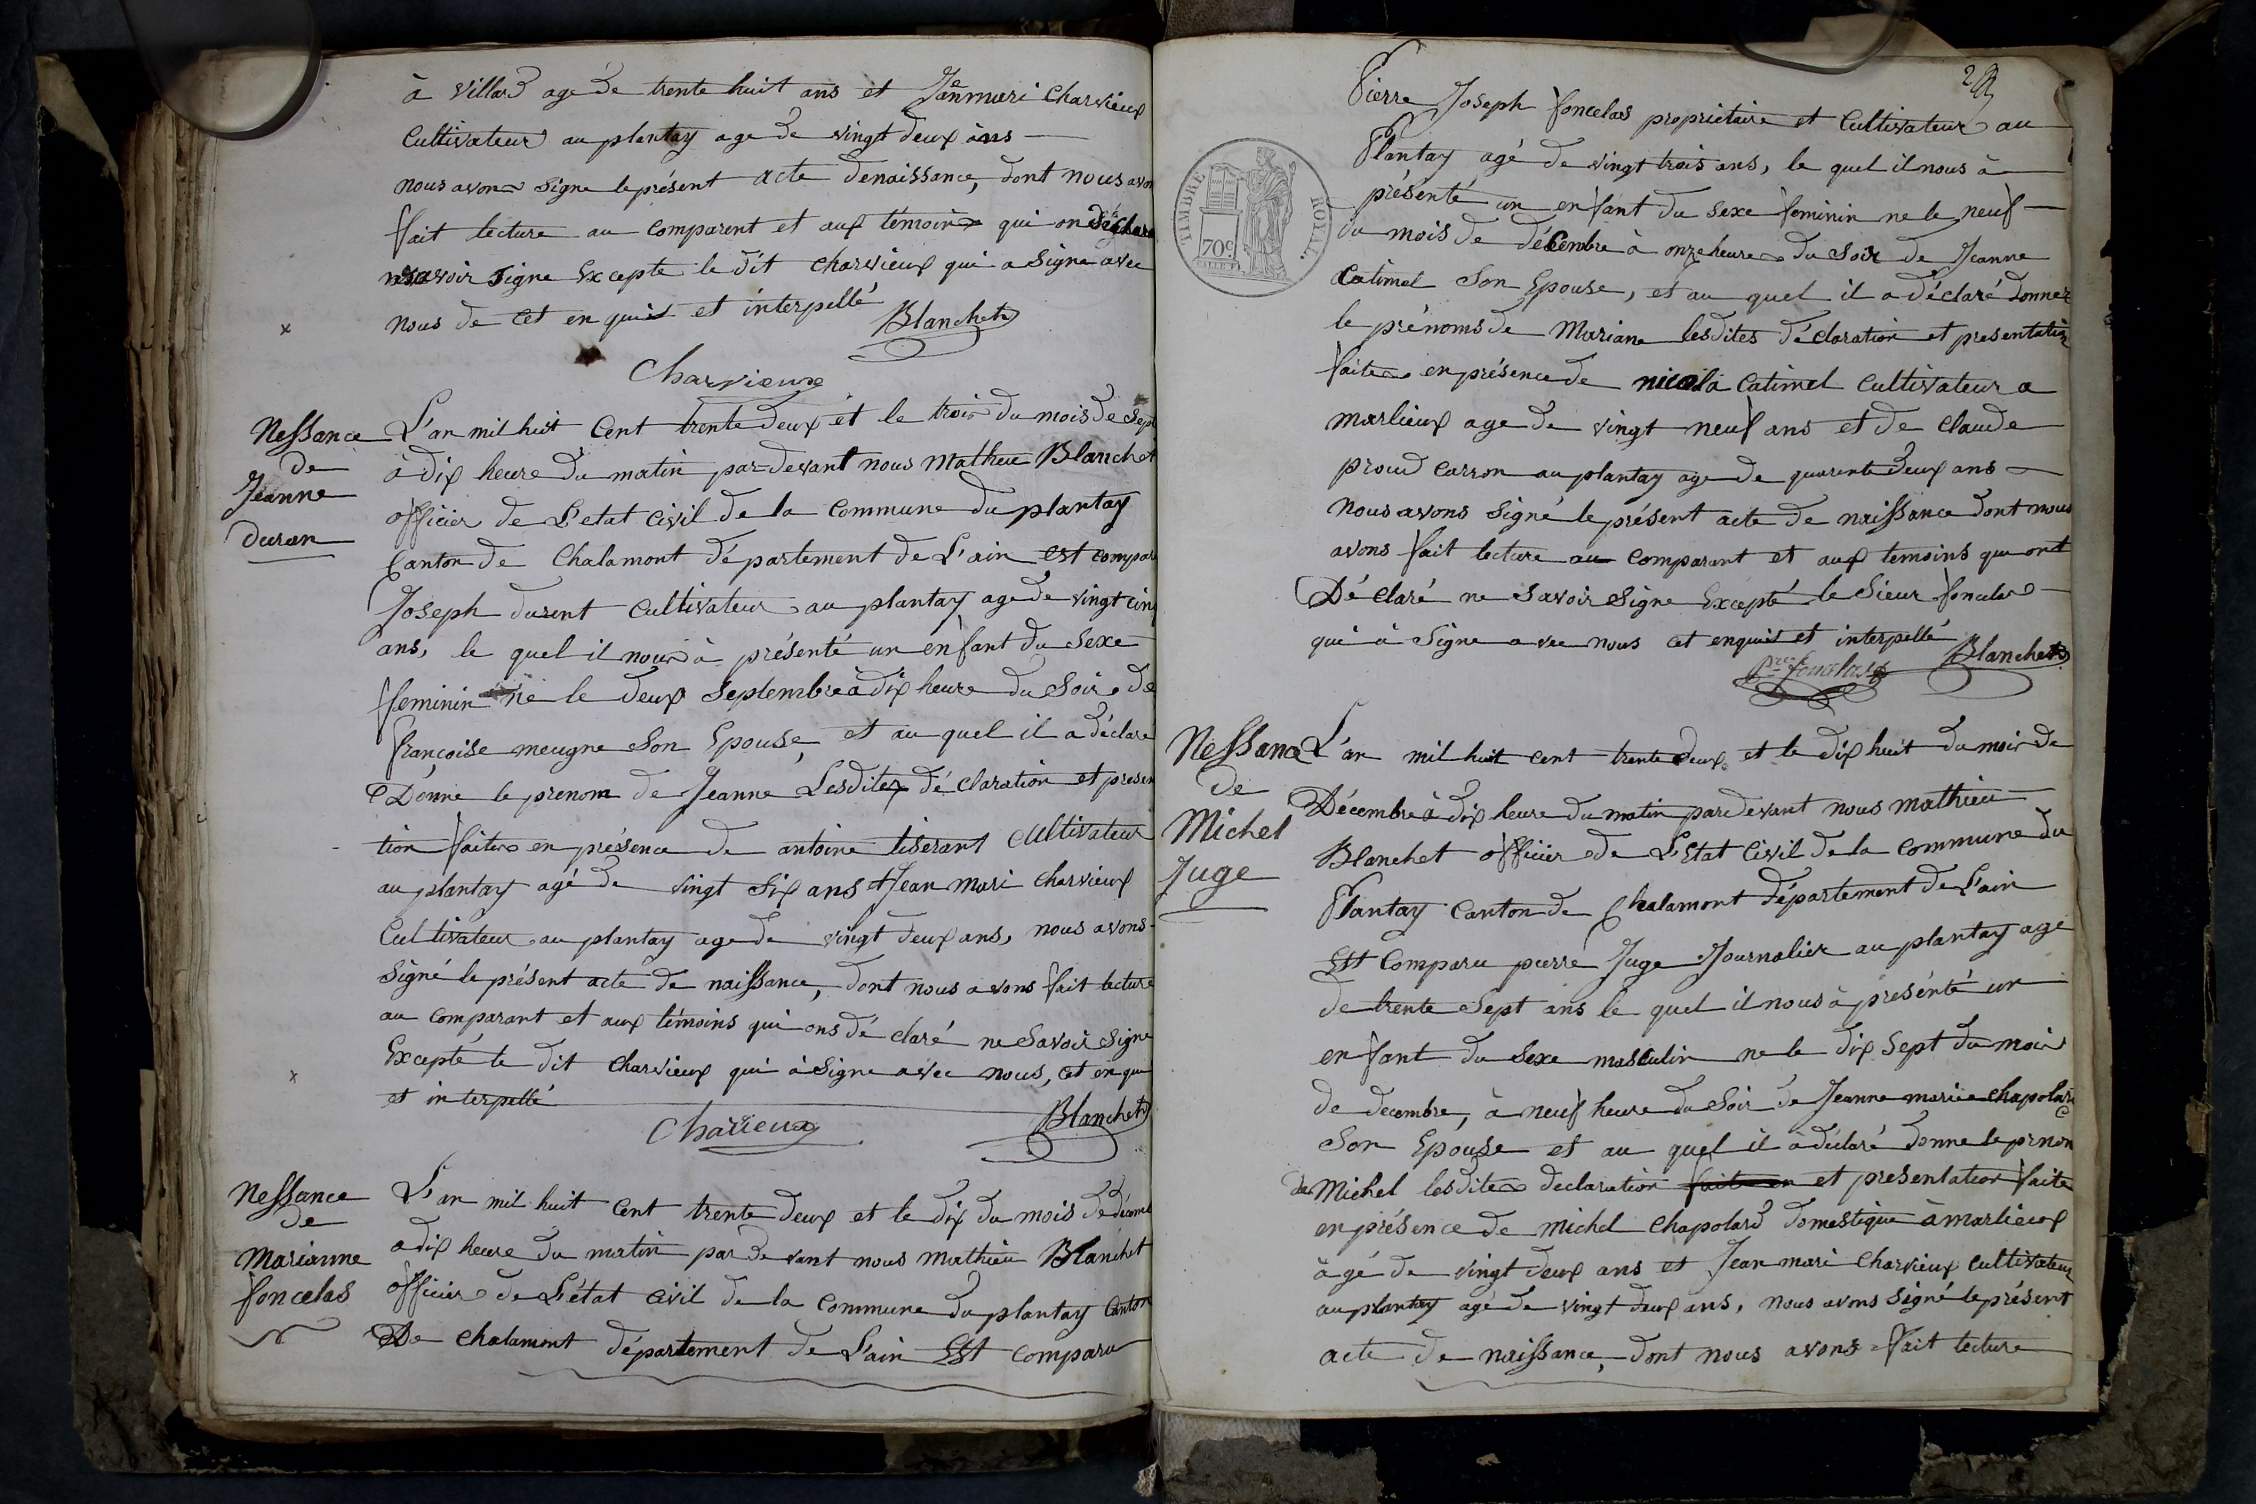 à villard agé de trente huit ans et Jeanmari charvieux
Cultivateur au plantay age de vingt deux ans
nous avons signe le présent acte de naissance, dont nous avon
fait lecture au comparent et aux témoins qui on déclaré
ne savoir signe Excepte le dit charvieux qui a signe avec
nous de cet enquis et interpellé
Blanchet
Charvieux
Nessance
de
Jeanne
duran
L'an mil huit cent trente deux et le trois du mois de sept
à dix heure du matin par devant nous Matheu Blanchet
officier de L'etat civil de la commune du plantay
Canton de Chalamont département de L'ain est compar
Joseph durent cultivateur au plantay age de vingt cinq
ans, le quel il nous à présenté un enfant du sexe
feminin né le deux septembre à dix heure du soir de
françoise meugne son Epouse, et au quel il a déclaré
Donne le prenom de Jeanne Lesdites déclaration et presen
tion faites en présence de antoine tiserant cultivateur
au plantay agé de vingt six ans et Jean mari charvieux
Cultivateur au plantay age de vingt deux ans, nous avons
signé le présent acte de naissance, dont nous avons fait lecture
au comparant et aux témoins qui ons déclaré ne savoir signe
Excepté le dit charvieux qui à signe avec nous, cet enqui
et interpellé
Blanchet
Charvieux
Nessance
de
Marianne
foncelas
L'an mil huit cent trente deux et le dix du mois de décemb
a dix heure du matin par devant nous mathieu Blanchet
officier de L'état civil de la commune du plantay Canton
De chalamont département de L'ain Est comparu
Pierre Joseph foncelas propriétaire et cultivateur au
Plantay agé de vingt trois ans, le quel il nous à
présenté un enfant du sexe feminin ne le neuf
du mois de décembre à onze heures du soir de Jeanne
Catimel son Epouse, et au quel il a déclaré donner
le prénoms de Mariane lesdites déclaration et presentation
faites en présence de nicola catimel cultivateur a
marlieux age de vingt neuf ans et de claude
proud carron au plantay age de quarente deux ans
nous avons signé le présent acte de naissance dont nous
avons fait lecture au comparant et aux temoins qui ont
Déclaré ne savoir signe Excepté le sieur foncelas
qui à signe avec nous cet enquis et interpellé
Blanchet
Pre foncelas
TIMBRE ROYAL
70c
Nessance
de
Michel
Juge
L'an mil huit cent trente deux et le dix huit du mois de
Décembre à dix heure du matin par devant nous mathieu
Blanchet officier de L'Etat civil de la commune du
Plantay canton de Chalamont département de L'ain
Est comparu pierre Juge Journalier au plantay age
de trente sept ans le quel il nous à présenté un
enfant du sexe masculin ne le dix sept du mois
de decembre, à neuf heure du soir de Jeanne mariee chapolard
son Epouse et au quel il à déclaré donne le prenom
de Michel lesdites declaration faite en et presentation faite
en présence de michel chapolard domestique à marlieux
àgé de vingt deux ans et Jean mari charvieux cultivateur
au plantay agé de vingt deux ans, nous avons signé le présent
acte de naissance, dont nous avons fait lecture